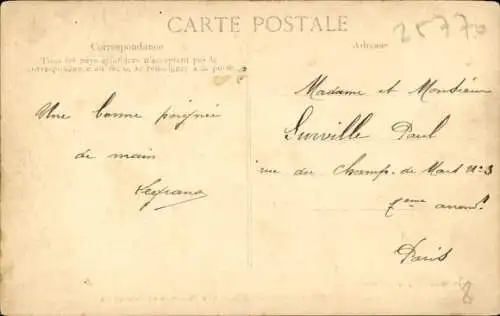 CARTE POSTALE
25770
Correspondance
Adresse
Tous les pays étrangers n'acceptent pas la
correspondance au recto, se renseigner à la poste
Une bonne poignée
de main
Madame et Monsieur
Paul
rue du Champ-de Mars No 3
7ème arrond.
Paris
8